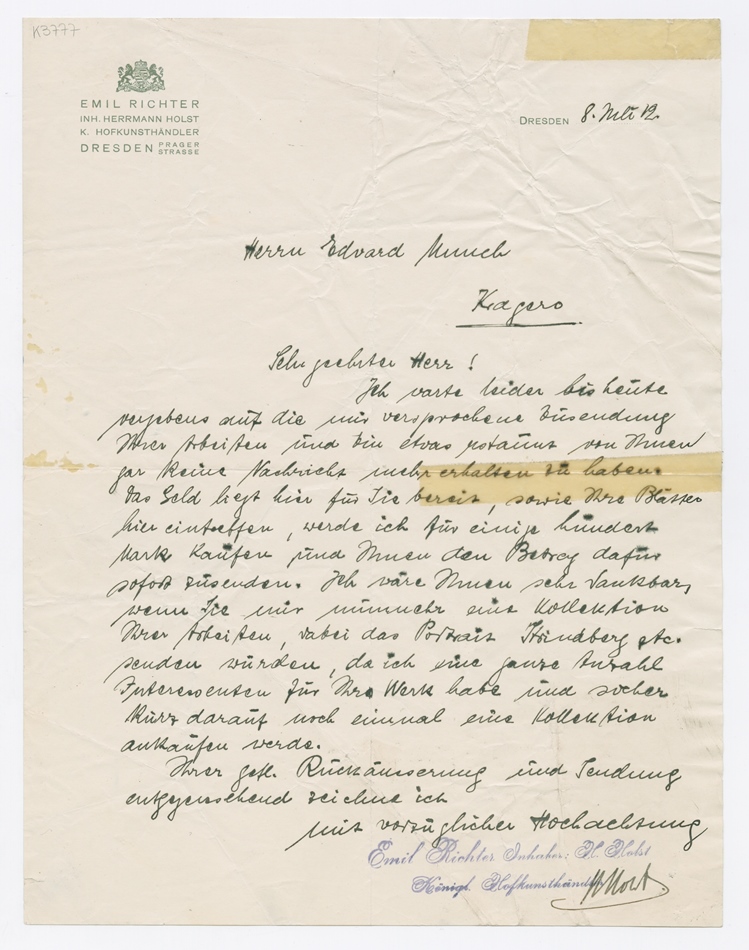 K3777
EMIL RICHTER
INH. HERRMANN HOLST
K. HOFKUNSTHÄNDLER
DRESDEN PRAGER STRASSE
DRESDEN 8. 12.
Herrn Edvard Munch
Kragero
Sehr geehrter Herr!
Ich warte leider bis heute
vergebens auf die mir versprochene Zusendung
Ihrer Arbeiten und bin etwas erstaunt von Ihnen
gar keine Nachricht mehr erhalten zu haben.
Das Geld liegt hier für Sie bereit, sowie Ihre Blätter
hier eintreffen, werde ich für einige hundert
Mark kaufen und Ihnen den Betrag dafür
sofort zusenden. Ich wäre Ihnen sehr dankbar,
wenn Sie mir nunmehr eine Kollektion
Ihrer Arbeiten, dabei das Portrait Strindberg etc.
senden würden, da ich eine ganze Anzahl
Interessenten für Ihre Werk habe und sicher
kurz darauf noch einmal eine Kollektion
ankaufen werde.
Ihrer gefl. Rückäusserung und Sendung
entgegensehend zeichne ich
mit vorzüglicher Hochachtung
Emil Richter Inhaber: H. Holst
Königl. Hofkunsthändler
H Holst.